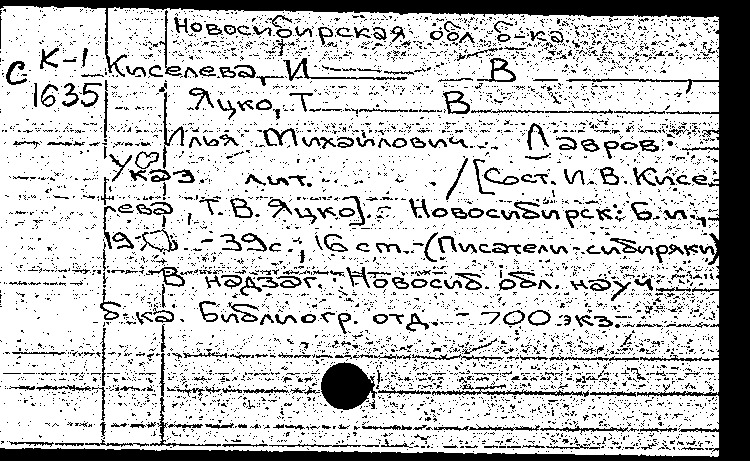 Новосибирская обл б-ка
С К-1 Киселева, И В
1635 Яцко, Т В
Илья Михайлович Лавров.
Указ лит. / [Сост. И. В. Кисе-
лева, Т. В. Яцко]. - Новосибирск: Б. и.,
- 39 с.; 16 cm. - (Писатели-сибиряки)
В надзаг.: Новосиб. обл. науч
б-ка. Библиогр. отд. - 700 экз.